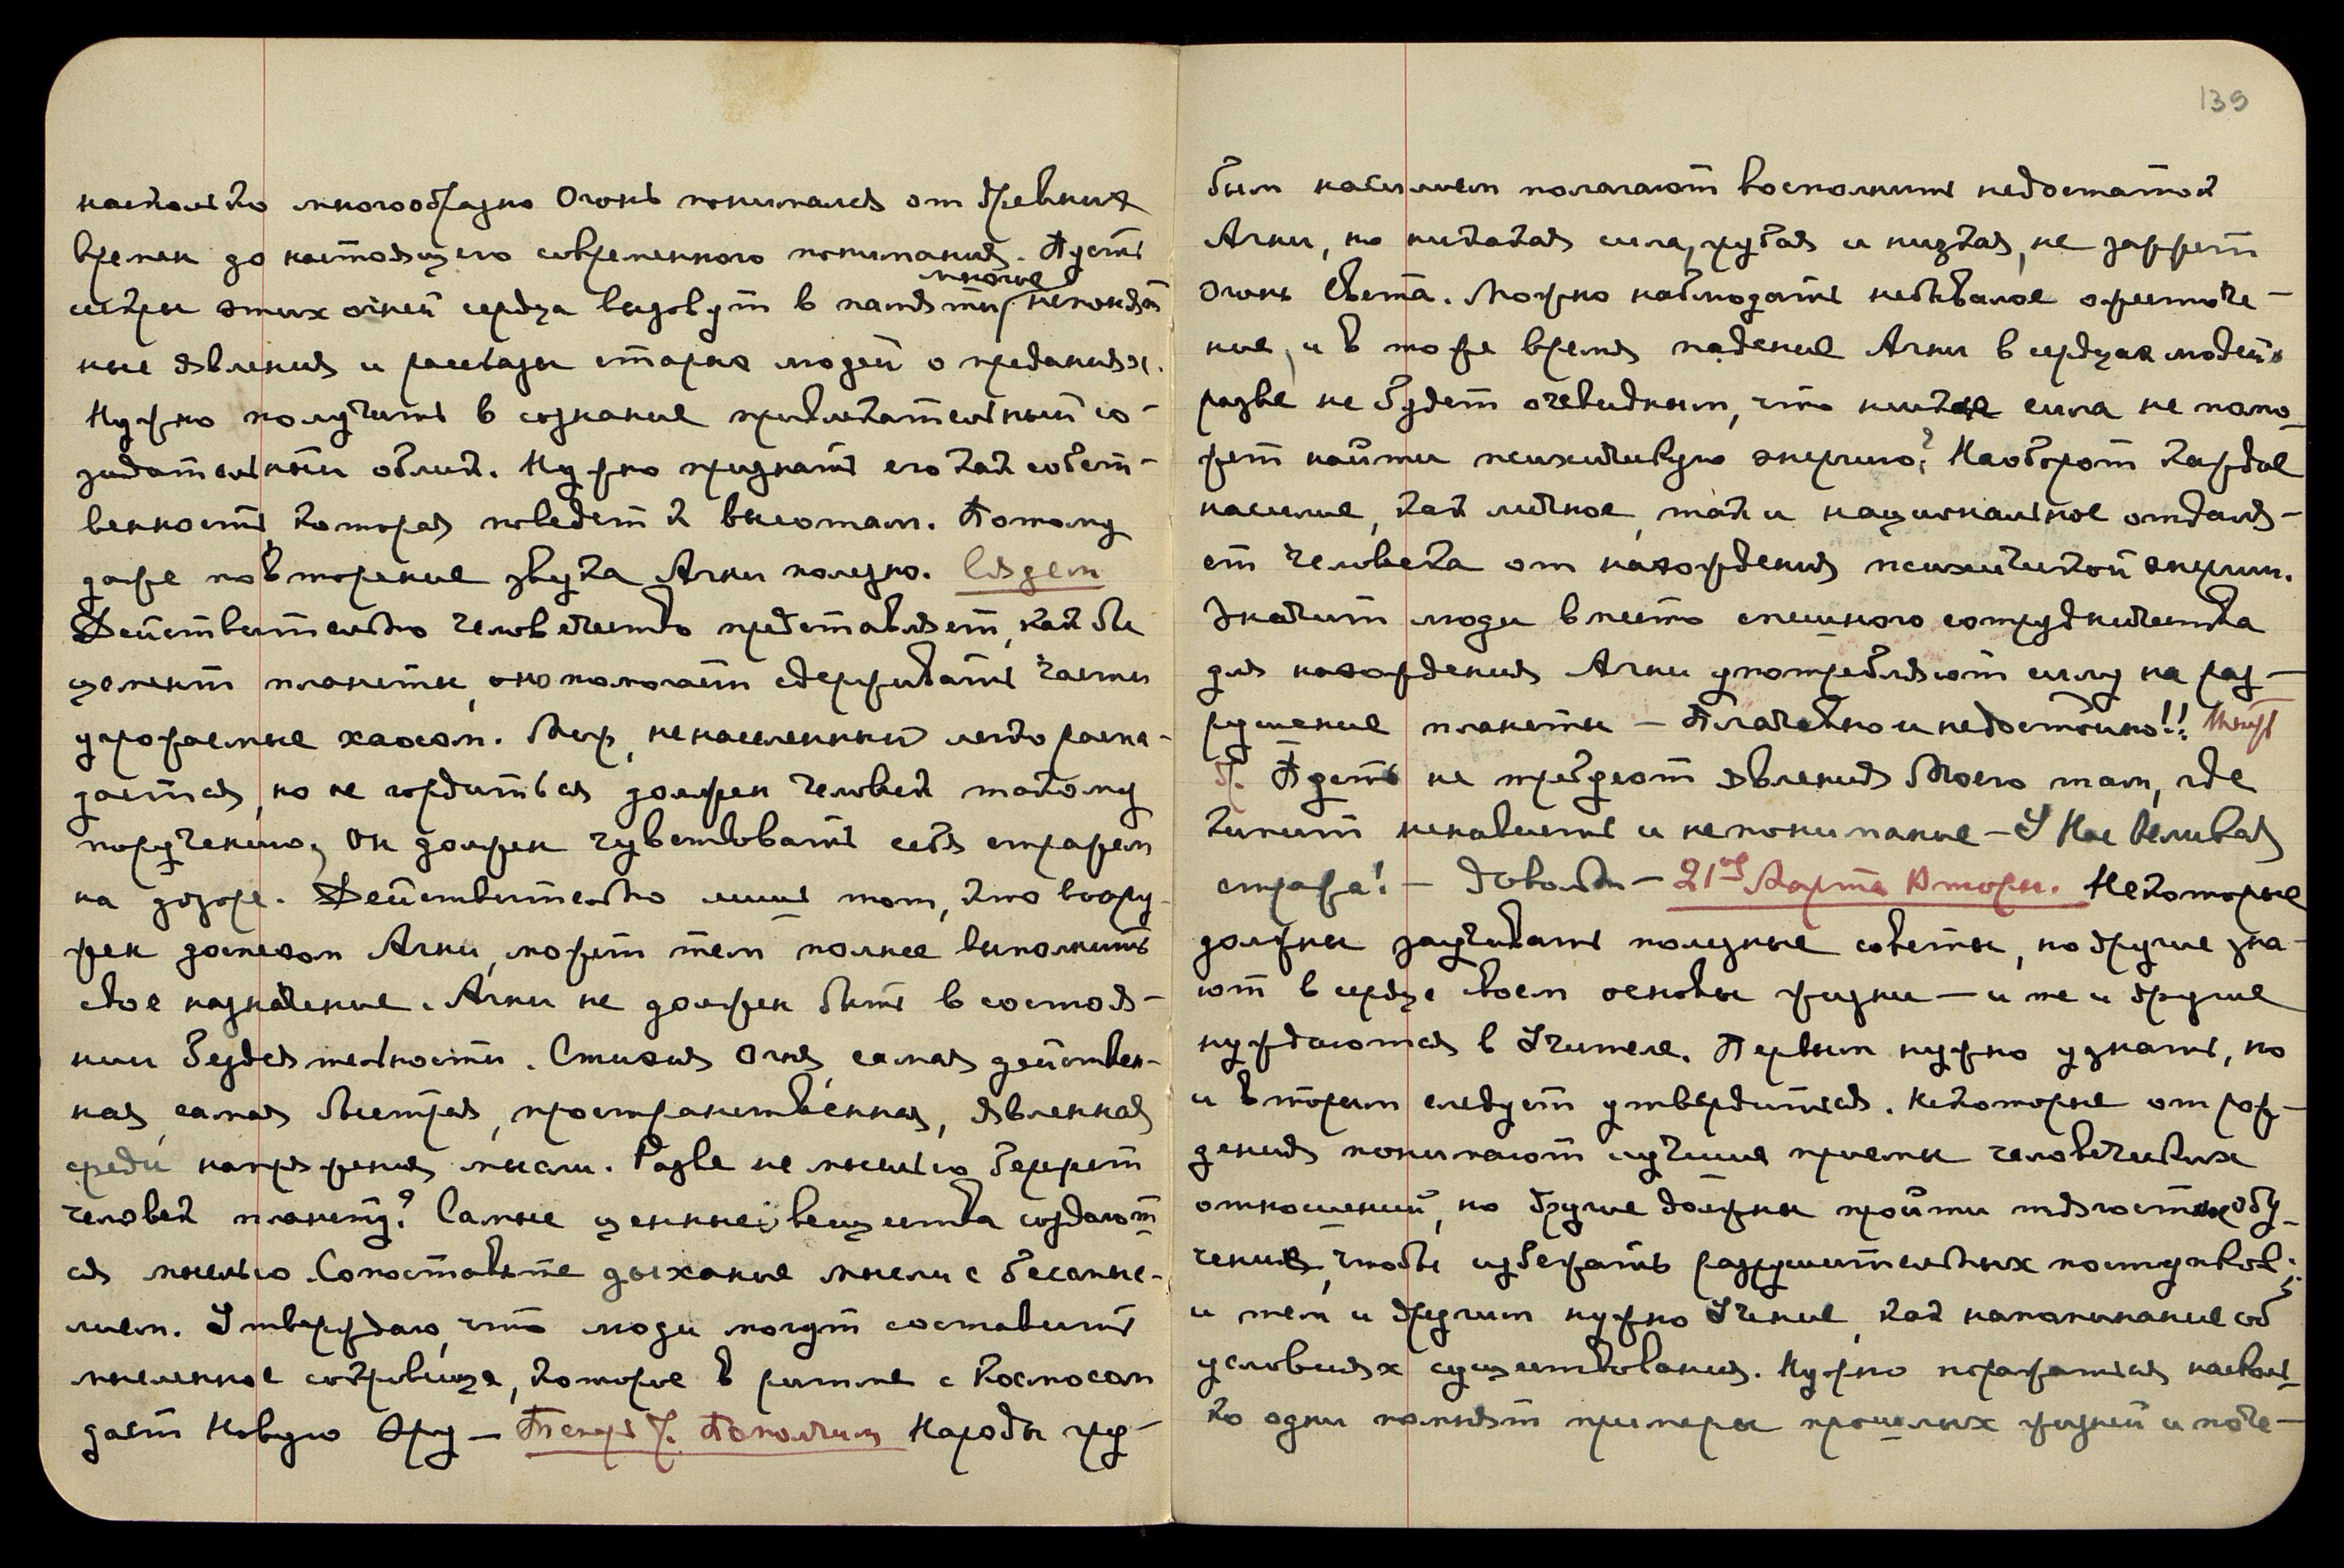 насколько многообразно Огонь понимался от древних
времен до настоящего современного понимания. Пусть
искры этих огней сердца вызовут в памяти многие непонят
ные явления и рассказы старых людей о преданиях.
Нужно получить в сознание привлекательный со-
зидательный облик. Нужно признать его как собст-
венность, которая поведет к высотам. Потому
даже повторение звука Агни полезно. Сядем
Действительно человечество представляет, как бы
цемент планеты, оно помогает сдерживать части
угрожаемые хаосом. Мир, ненаселенный легко распа-
дается, но не гордиться должен человек такому
поручению, он должен чувствовать себя стражем
на дозоре. Действительно лишь тот, кто воору-
жен доспехом Агни, может тем полнее выполнить
свое назначение. Агни не должен быть в состоя-
нии бездеятельности. Стихия Огня, самая действен-
ная, самая быстрая, пространственная, явленная
среди напряжения мысли. Разве не мыслью бережет
человек планету? Самые ценные вещества создают-
ся мыслью. Сопоставьте дыхание мысли с бессмыс-
лием. Утверждаю, что люди могут составить
мысленное сокровище, которое в ритме с Космосом
дает Новую Эру — Теперь У. Помолчим Народы гру-
139
бым насилием полагают восполнить недостаток
Агни, но никакая сила, грубая и низкая, не зажжет
огонь Света. Можно наблюдать небывалое ожесточе-
ние, и в то же время падение Агни в сердцах людей;
разве не будет очевидным, что низкая сила не помо-
жет найти психическую энергию? Наоборот каждое
насилие, как личное, так и национальное отдаля-
ет человека от нахождения психической энергии.
Значит люди вместо спешного сотрудничества
для нахождения Агни употребляют силу на раз-
рушение планеты — Плачевно и недостойно!!
У. Пусть не требуют явления Моего там, где
кипит ненависть и непонимание — У Нас великая
стража! — Довольно — 21ое Марта Вторн. Некоторые
должны заучивать полезные советы, но другие зна-
ют в сердце своем основы жизни — и те и другие
нуждаются в Учителе. Первым нужно узнать, но
и вторым следует утвердиться. Некоторые от рож-
дения понимают лучшие приемы человеческих
отношений, но другие должны пройти тягостное обу-
чение, чтобы избежать разрушительных поступков;
и тем и другим нужно Учение, как напоминание об
условиях существования. Нужно поражаться насколь-
ко одни помнят примеры прошлых жизней и поче-